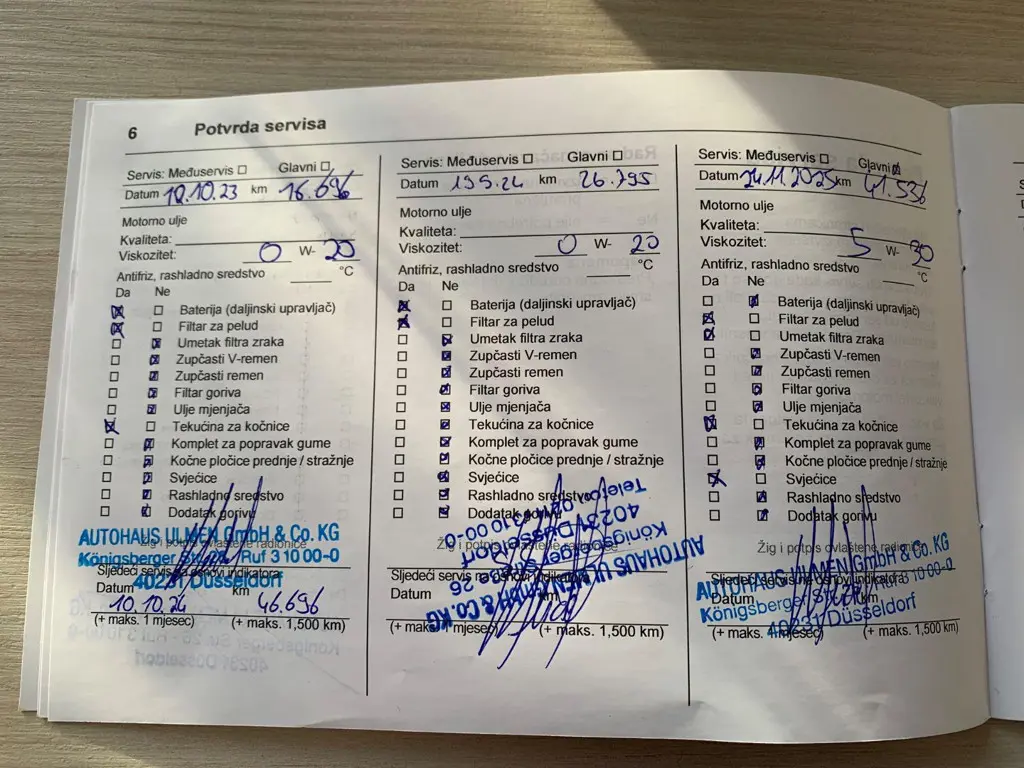 6 Potvrda servisa
Servis: Međuservis ☐ Glavni ☐
Datum 10.10.23 km 16.696
Motorno ulje
Kvaliteta:
Viskozitet: 0 W- 20
Antifriz, rashladno sredstvo °C
Da Ne
☒ ☐ Baterija (daljinski upravljač)
☒ ☐ Filtar za pelud
☐ ☒ Umetak filtra zraka
☐ ☒ Zupčasti V-remen
☐ ☒ Zupčasti remen
☐ ☒ Filtar goriva
☐ ☒ Ulje mjenjača
☒ ☐ Tekućina za kočnice
☐ ☒ Komplet za popravak gume
☐ ☒ Kočne pločice prednje / stražnje
☐ ☒ Svjećice
☐ ☒ Rashladno sredstvo
☐ ☒ Dodatak gorivu
AUTOHAUS ULMEN GmbH & Co. KG
Žig i potpis ovlaštene radionice
Königsberger Ruf 3 10 00-0
40231 Düsseldorf
Datum 10.10.24 km 46.696
(+ maks. 1 mjesec) (+ maks. 1,500 km)
Servis: Međuservis ☐ Glavni ☐
Datum 19 9.24 km 26.795
Motorno ulje
Kvaliteta:
Viskozitet: 0 W- 20
Antifriz, rashladno sredstvo °C
Da Ne
☒ ☐ Baterija (daljinski upravljač)
☒ ☐ Filtar za pelud
☐ ☒ Umetak filtra zraka
☐ ☒ Zupčasti V-remen
☐ ☒ Zupčasti remen
☐ ☒ Filtar goriva
☐ ☒ Ulje mjenjača
☐ ☒ Tekućina za kočnice
☐ ☒ Komplet za popravak gume
☐ ☒ Kočne pločice prednje / stražnje
☐ ☒ Svjećice
☐ ☒ Rashladno sredstvo
☐ ☒ Dodatak gorivu
Žig i potpis
AUTOHAUS ULMEN GmbH & Co. KG
40231 Düsseldorf
Sljedeći servis na osnovi indikatora
Datum km
(+ maks. 1 mjesec) (+ maks. 1,500 km)
Servis: Međuservis ☐ Glavni ☒
Datum 24.11.2025 km 41.536
Motorno ulje
Kvaliteta:
Viskozitet: 5 W- 30
Antifriz, rashladno sredstvo °C
Da Ne
☐ ☒ Baterija (daljinski upravljač)
☒ ☐ Filtar za pelud
☒ ☐ Umetak filtra zraka
☐ ☒ Zupčasti V-remen
☐ ☒ Zupčasti remen
☐ ☒ Filtar goriva
☐ ☒ Ulje mjenjača
☒ ☐ Tekućina za kočnice
☐ ☒ Komplet za popravak gume
☐ ☒ Kočne pločice prednje / stražnje
☒ ☐ Svjećice
☐ ☒ Rashladno sredstvo
☐ ☒ Dodatak gorivu
Žig i potpis ovlaštene radionice
AUTOHAUS ULMEN GmbH & Co. KG
Sljedeći servis na osnovi indikatora
Datum km
Königsberger 10 00-0
40231 Düsseldorf
(+ maks. 1 mjesec) (+ maks. 1,500 km)